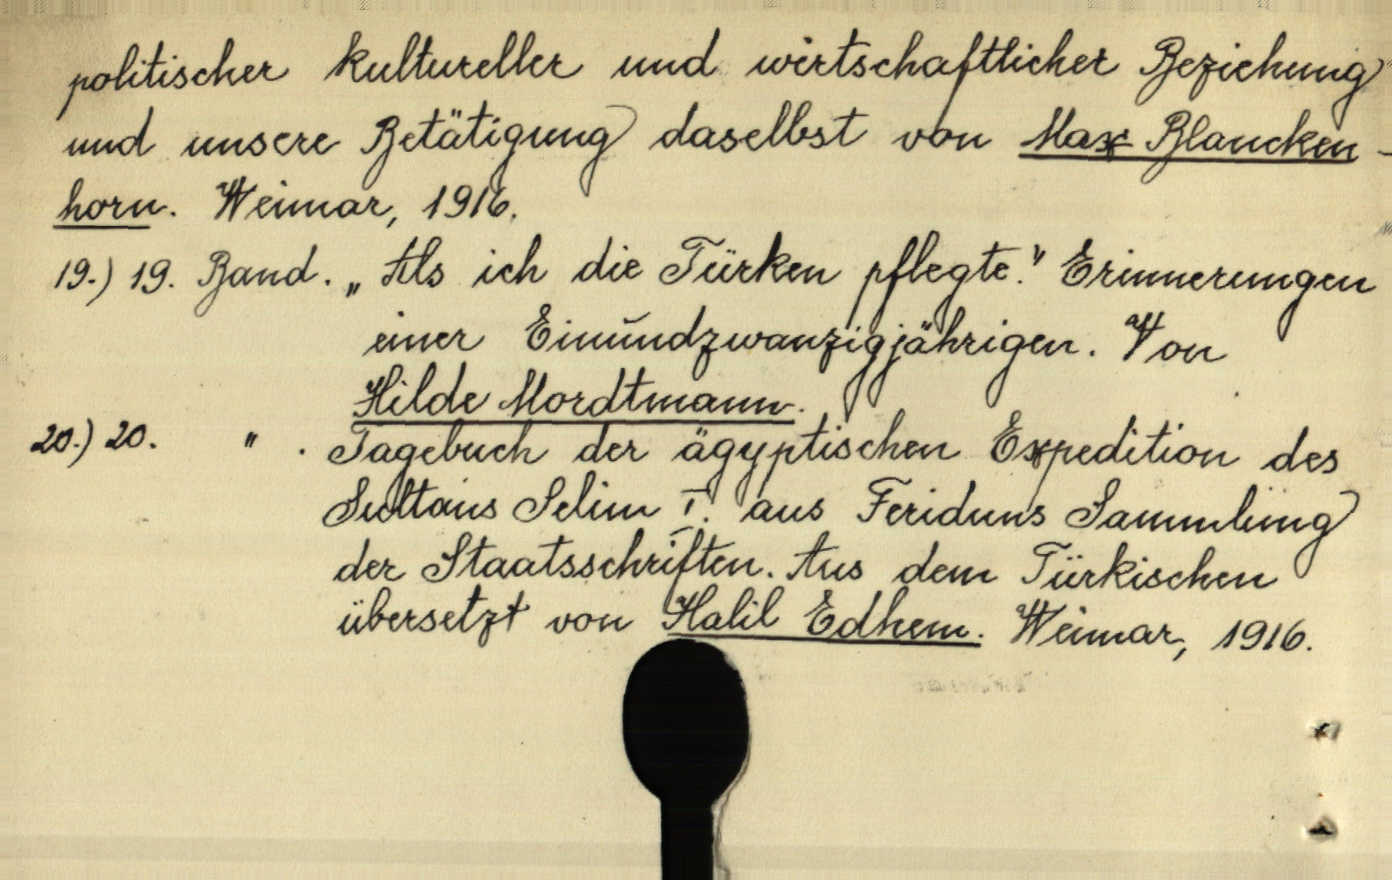 politischer kultureller und wirtschaftlicher Beziehung
und unsere Betätigung daselbst von Max Blancken-
horn. Weimar, 1916.
19.) 19. Band. „Als ich die Türken pflegte." Erinnerungen
einer Einundzwanzigjährigen. Von
Hilde Mordtmann.
20.) 20. " . Tagebuch der ägyptischen Expedition des
Sultans Selim I. aus Feriduns Sammlung
der Staatsschriften. Aus dem Türkischen
übersetzt von Halil Edhem. Weimar, 1916.